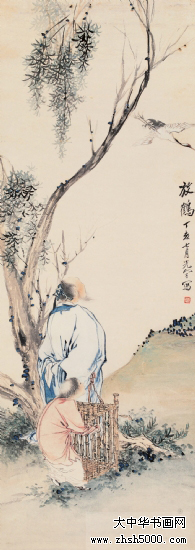 放鶴
丁丑七月光元寫
大中华书画网
www.zhsh5000.com